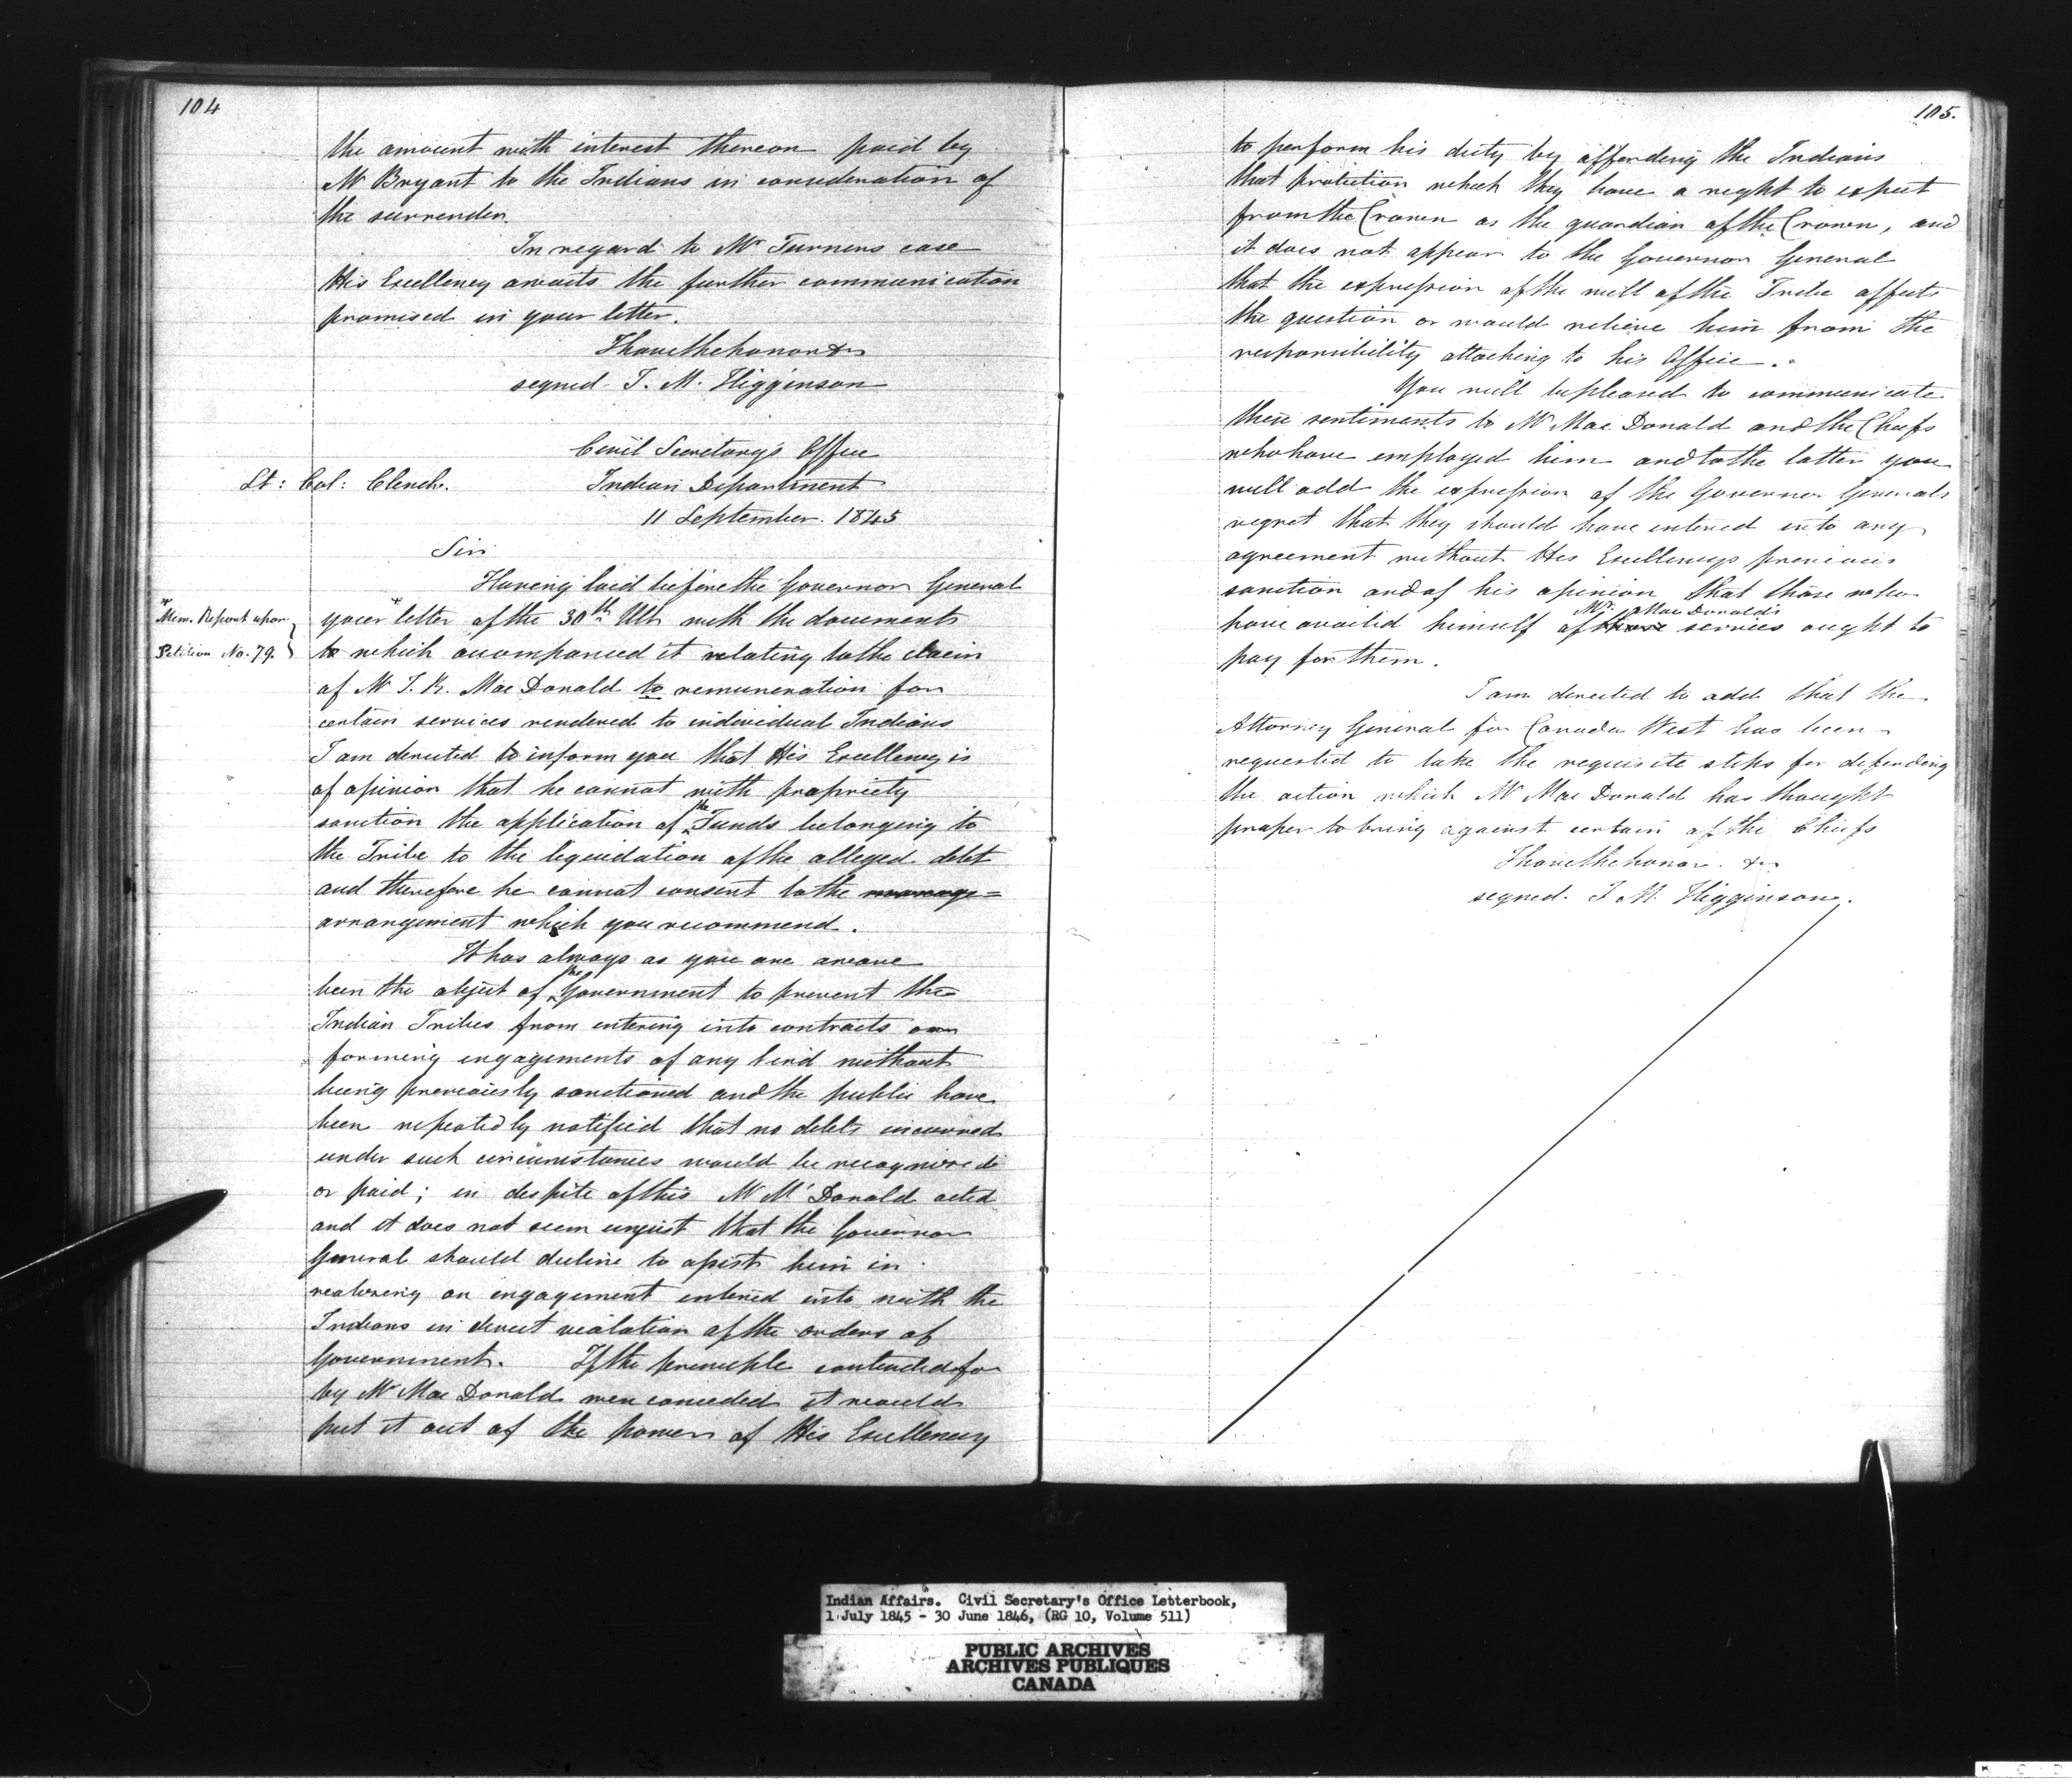 104
the amount with interest thereon paid by
Mr Bryant to the Indians in consideration of
the surrender.
In regard to Mr Turners case
His Excellency awaits the further communication
promised in your letter.
I have the honor &c
signed J. M. Higginson
Civil Secretary's Office
Lt: Col: Clench. Indian Department
11 September. 1845
Sir
Having laid before the Governor General
* Mem. Report upon
Petition No. 79.
your * letter of the 30th Ult with the documents
to which accompanied it relating to the claim
of Mr J. R. Mac Donald to remuneration for
certain services rendered to individual Indians
I am directed to inform you that His Excellency is
of opinion that he cannot with propriety
sanction the application of the Funds belonging to
the Tribe to the liquidation of the alleged debt
and therefore he cannot consent to the manage=
arrangement which you recommend.
It has always as you are aware
been the object of the Government to prevent the
Indian Tribes from entering into contracts or
forming engagements of any kind without
being previously sanctioned and the public have
been repeatedly notified that no debts incurred
under such circumstances would be recognized
or paid; in despite of this Mr Mc Donald acted
and it does not seem unjust that the Governor
General should decline to assist him in
realising an engagement entered into with the
Indians in direct violation of the orders of
Government. If the principle contended for
by Mr Mac Donald were conceded it would
put it out of the power of His Excellency
105.
to perform his duty by affording the Indians
that protection which they have a right to expect
from the Crown as the guardian of the Crown, and
it does not appear to the Governor General
that the expression of the will of the Tribe affects
the question or would relieve him from the
responsibility attaching to his Office.
You will be pleased to communicate
these sentiments to Mr Mac Donald and the Chiefs
who have employed him and to the latter you
will add the expression of the Governor Generals
regret that they should have entered into any
agreement without His Excellencys previous
sanction and of his opinion that those who
have availed himself of those Mr. Mac Donald's services ought to
pay for them.
I am directed to add that the
Attorney General for Canada West has been
requested to take the requisite steps for defending
the action which Mr Mac Donald has thought
proper to bring against certain of the Chiefs
I have the honor. &c
signed. J M. Higginson.
Indian Affairs. Civil Secretary's Office Letterbook,
1 July 1845 - 30 June 1846, (RG 10, Volume 511)
PUBLIC ARCHIVES
ARCHIVES PUBLIQUES
CANADA